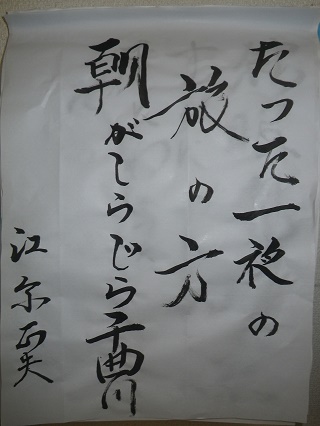 たった一夜の
旅の方
朝がしらじら千曲川
江尔正夫